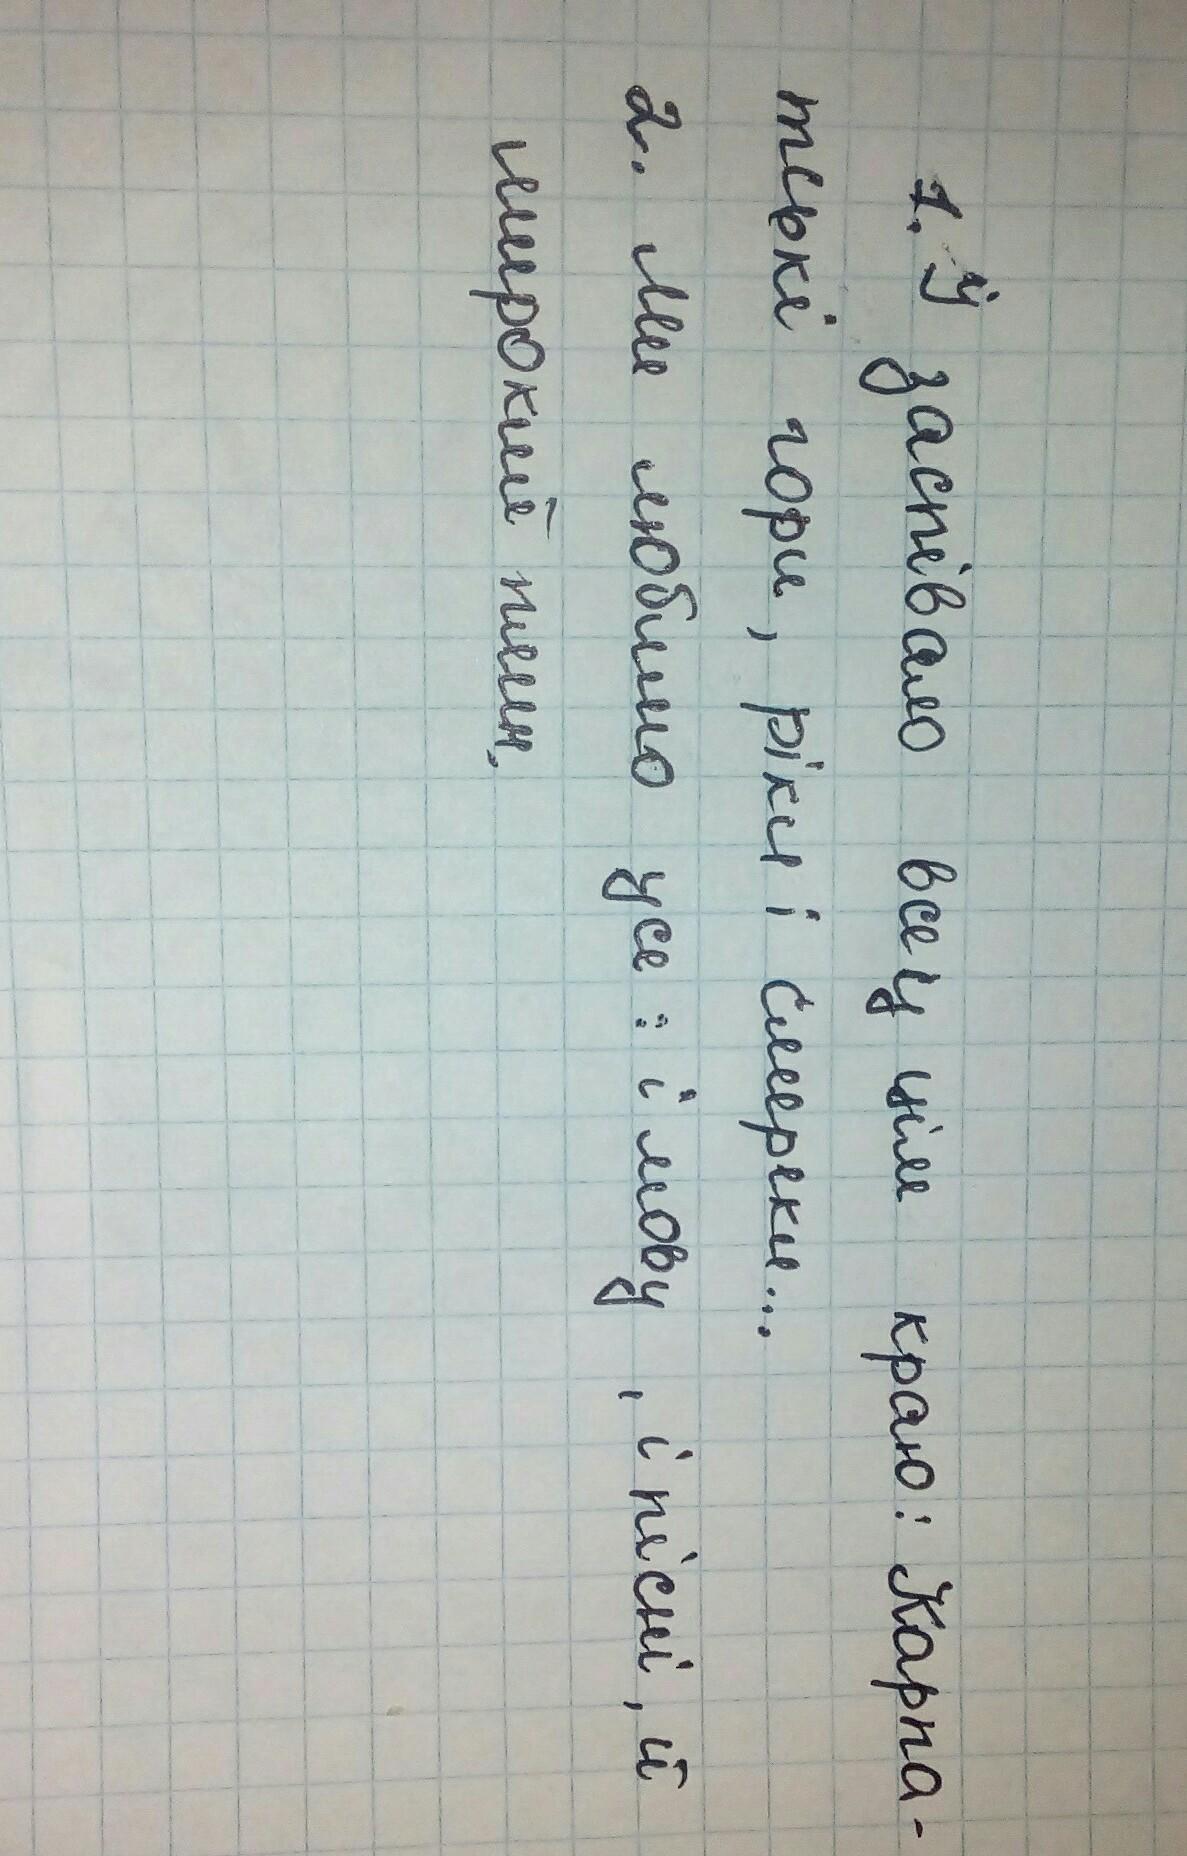 1. Й заспівало все у цім краю: Карпа-
тські гори, ріки і смереки...
2. Ми любимо усе: і мову, і пісні, й
широкий плин.